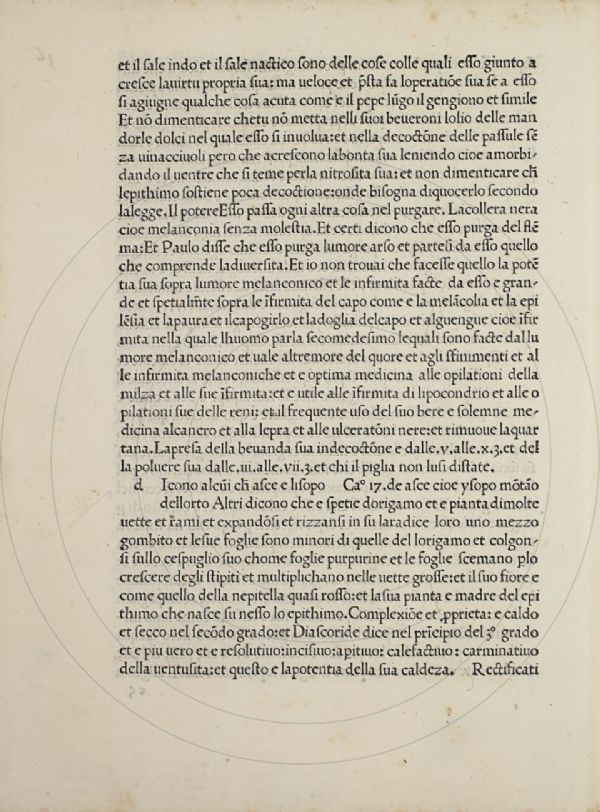 et il sale indo et il sale nactico sono delle cose colle quali esso giunto a
cresce lauirtu propria sua: ma ueloce et p̄sta fa loperatiōe sua se a esso
si agiugne qualche cosa acuta come e il pepe lūgo il gengiouo et simile
Et nō dimenticare chetu nō metta nelli suoi beueroni lolio delle man
dorle dolci nel quale esso si inuolua: et nella decoctōne delle passule sē
za uinacciuoli pero che acrescono labonta sua leniendo cioe amorbi-
dando il uentre che si teme perla nitrosita sua: et non dimenticare ch̄
lepithimo sostiene poca decoctione: onde bisogna diquocerlo secondo
lalegge. Il potere Esso passa ogni altra cosa nel purgare. Lacollera nera
cioe melanconia senza molestia. Et certi dicono che esso purga del flē
ma: Et Paulo disse che esso purga lumore arso et partesi da esso quello
che comprende ladiuersita. Et io non trouai che facesse quello la potē
tia sua sopra lumore melanconico et le infirmita facte da esso e gran-
de et spetialm̄te sopra le īfirmita del capo come e la melācolia et la epi
lēsia et lapaura et ilcapogirlo et ladoglia delcapo et alguengue cioe īfir
mita nella quale lhuomo parla secomedesimo lequali sono facte dallu
more melanconico et uale altremore del quore et agli sfinimenti et al
le infirmita melanconiche et e optima medicina alle opilationi della
milza et alle sue īfirmita: et e utile alle īfirmita di lipocondrio et alle o
pilationi sue delle reni: et il frequente uso del suo bere e solemne me-
dicina alcancro et alla lepra et alle ulceratōni nere: et rimuoue laquar
tana. Lapresa della beuanda sua indecoctōne e dalle .v. alle .x. ʒ. et del
la poluere sua dalle .iii. alle .vii. ʒ. et chi il piglia non lusi distate.
d Icono alcūi ch̄ asce e lisopo Caº 17. de asce cioe ysopo mōtāo
dellorto Altri dicono che e spetie dorigamo et e pianta dimolte
uette et rami et expandōsi et rizzansi in su laradice loro uno mezzo
gombito et lesue foglie sono minori di quelle del lorigamo et colgon-
si sullo cespuglio suo chome foglie purpurine et le foglie scemano plo
crescere degli stipiti et multiplichano nelle uette grosse: et il suo fiore e
come quello della nepitella quasi rosso: et la sua pianta e madre del epi
thimo che nasce su nesso lo epithimo. Complexiōe et ꝓprieta: e caldo
et secco nel secōdo grado: et Diascoride dice nel prīcipio del 3º grado
et e piu uero et e resolutiuo: incisiuo: apitiuo: calefactiuo: carminatiuo
della uentusita: et questo e lapotentia della sua caldeza. Rectificati